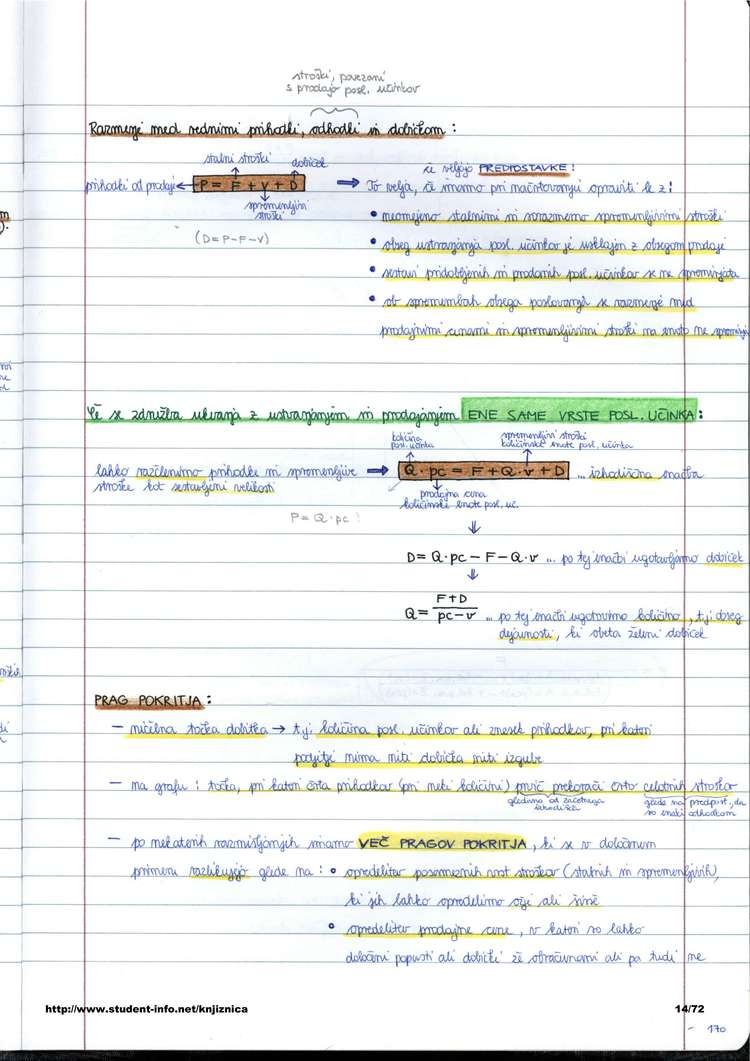 stroški, povezani
s prodajo posl. učinkov
Razmerje med rednimi prihodki, odhodki in dobičkom :
stalni stroški
dobiček
če veljajo PREDPOSTAVKE!
prihodki od prodaje ← P = F + V + D → To velja, če imamo pri načrtovanju opraviti le z:
spremenljivi
stroški
(D = P - F - V)
• neomejeno stalnimi in sorazmerno spremenljivimi stroški
• obseg ustvarjanja posl. učinkov je usklajen z obsegom prodaje
• sestavi pridobljenih in prodanih posl. učinkov se ne spreminjata
• ob spremembah obsega poslovanja se razmerje med
prodajnimi cenami in spremenljivimi stroški na enoto ne
Če se združba ukvarja z ustvarjanjem in prodajanjem ENE SAME VRSTE POSL. UČINKA :
količina
posl. učinka
spremenljivi stroški
količinske enote posl. učinka
lahko razčlenimo prihodke in spremenljive → Q · pc = F + Q · v + D ... izhodiščna enačba
stroške kot sestavljeni velikosti
prodajna cena
količinske enote posl. uč.
P = Q · pc !
D = Q · pc - F - Q · v ... po tej enačbi ugotavljamo dobiček
Q = F + D / pc - v ... po tej enačbi ugotovimo količino, t.j. obseg
dejavnosti, ki obeta želeni dobiček
PRAG POKRITJA :
- ničelna točka dobička → t.j. količina posl. učinkov ali znesek prihodkov, pri kateri
podjetje nima niti dobička niti izgube
- na grafu : točka, pri kateri črta prihodkov (pri neki količini) prvič prekorači črto celotnih stroškov
gledamo od začetnega
izhodišča
glede na predpost., da
so enaki odhodkom
- po nekaterih razmišljanjih imamo VEČ PRAGOV POKRITJA, ki se v določenem
primeru razlikujejo glede na : • opredelitev posameznih vrst stroškov (stalnih in spremenljivih),
ki jih lahko opredelimo ožje ali širše
• opredelitev prodajne cene, v kateri so lahko
določeni popusti ali dobički že obračunani ali pa tudi ne
http://www.student-info.net/knjiznica
14/72
- 170